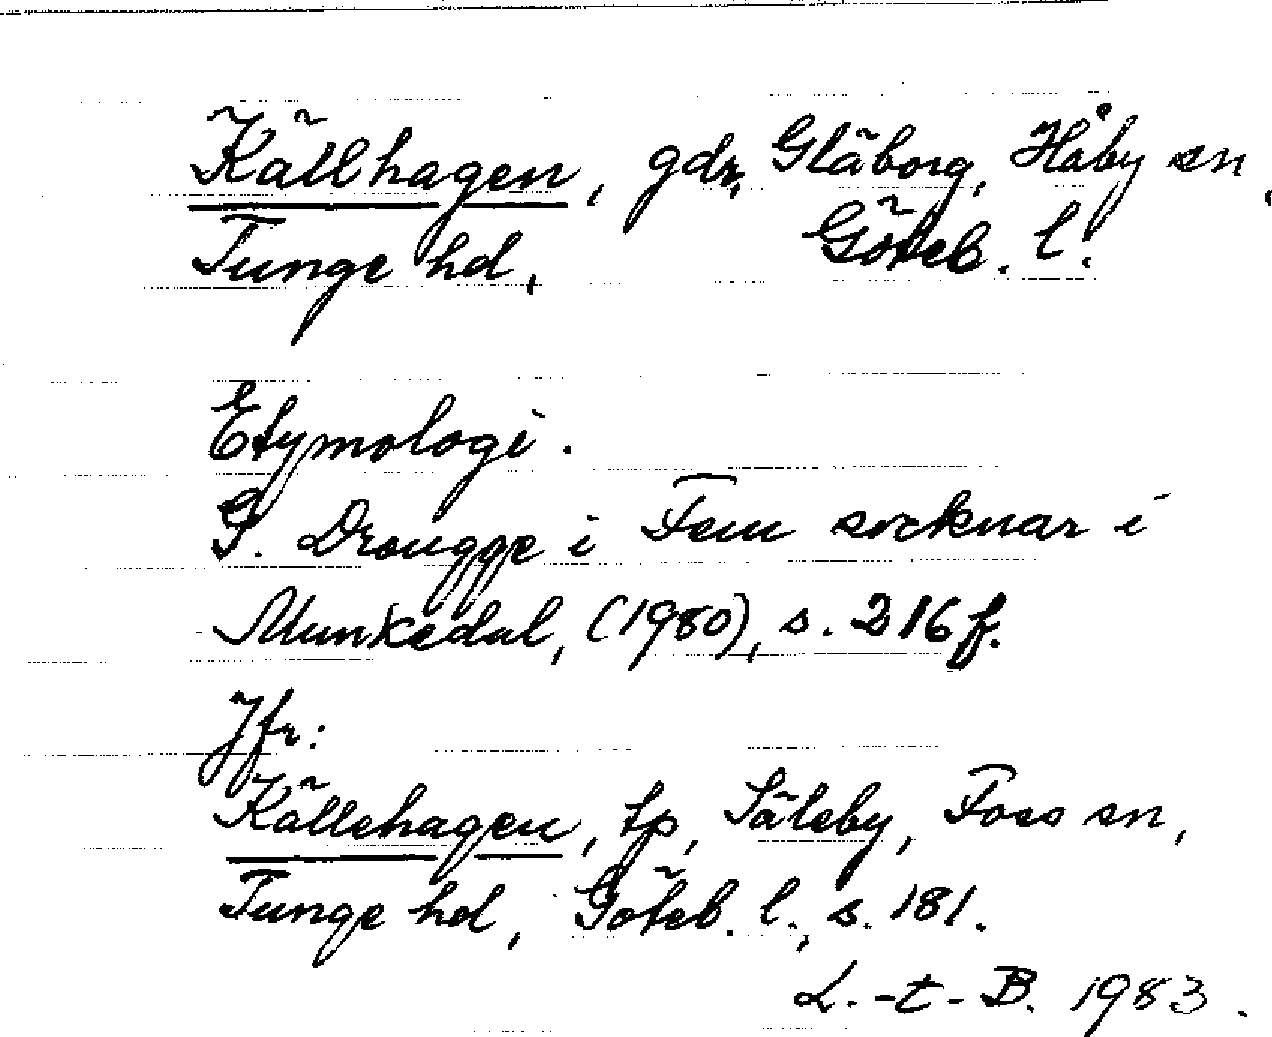 Källhagen, gdr, Gläborg, Håby sn,
Tunge hd, Göteb. l.
Etymologi.
G. Drougge i Fem socknar i
Munkedal, (1980), s. 216 f.
Jfr:
Källehagen, tp, Säleby, Foss sn,
Tunge hd, Göteb. l., s. 181.
L.-t-B. 1983.